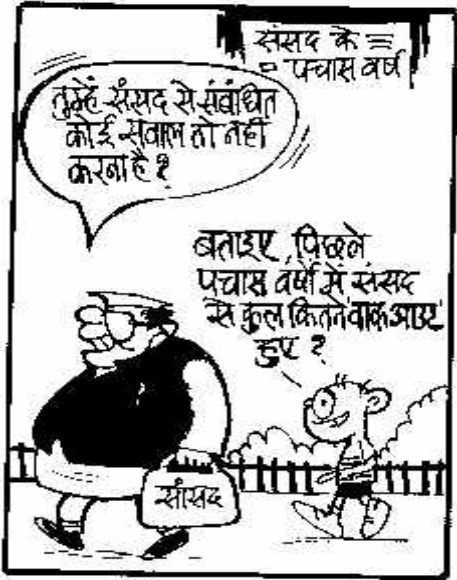 संसद के
पचास वर्ष
तुम्हें संसद से संबंधित
कोई सवाल तो नहीं
करना है?
बताइए, पिछले
पचास वर्षों में संसद
से कुल कितने वाकआउट
हुए?
सांसद